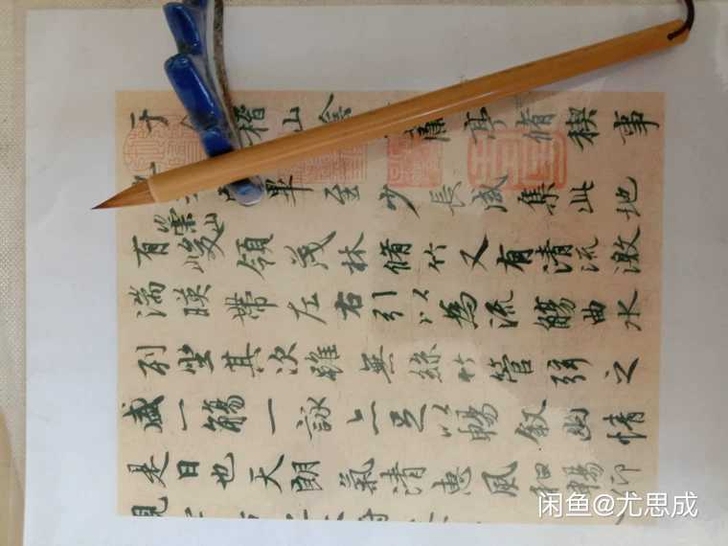 于稽山亭脩稧事
畢至少長咸集此地
有崇山峻領茂林脩竹又有清流激
湍暎帶左右引以為流觴曲水
列坐其次雖無絲竹管弦之
盛一觴一詠亦足以暢敘幽情
是日也天朗氣清惠風和暢仰
闲鱼@尤思成